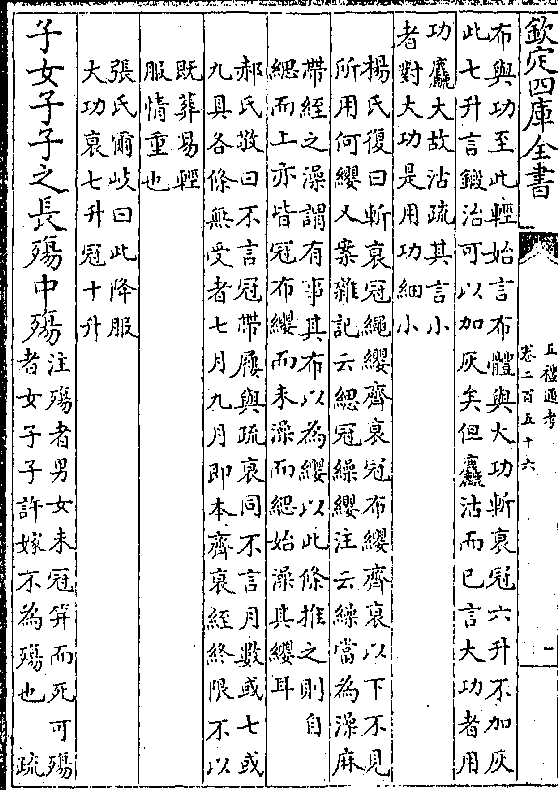 欽定四庫全書
五禮通考
卷二百五十六
一
布與功至此輕始言布體與大功斬衰冠六升不加灰
此七升言鍛治可以加灰矣但麤沽而已言大功者用
功麤大故沽疏其言小
者對大功是用功細小
楊氏復曰斬衰冠繩纓齊衰冠布纓齊衰以下不見
所用何纓又案雜記云緦冠繰纓注云繰當為澡麻
帶絰之澡謂有事其布以為纓以此條推之則自
緦而上亦皆冠布纓而未澡而緦始澡其纓耳
郝氏敬曰不言冠帶屨與疏衰同不言月數或七或
九具各條無受者七月九月即本齊衰絰終限不以
既葬易輕
服情重也
張氏爾岐曰此降服
大功衰七升冠十升
子女子子之長殤中殤
注殤者男女未冠笄而死可殤
者女子子許嫁不為殤也　疏